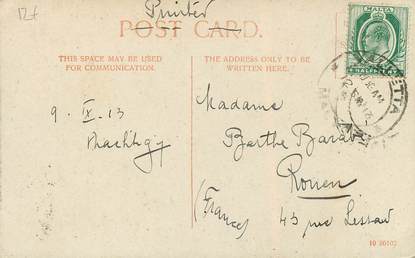 12f
Printed
POST CARD.
THIS SPACE MAY BE USED
FOR COMMUNICATION.
THE ADDRESS ONLY TO BE
WRITTEN HERE.
MALTA
HALFPENNY
VALLETTA
MALTA
9. IX. 13
Madame
Berthe
Rouen
(France)
43 rue
10 30102